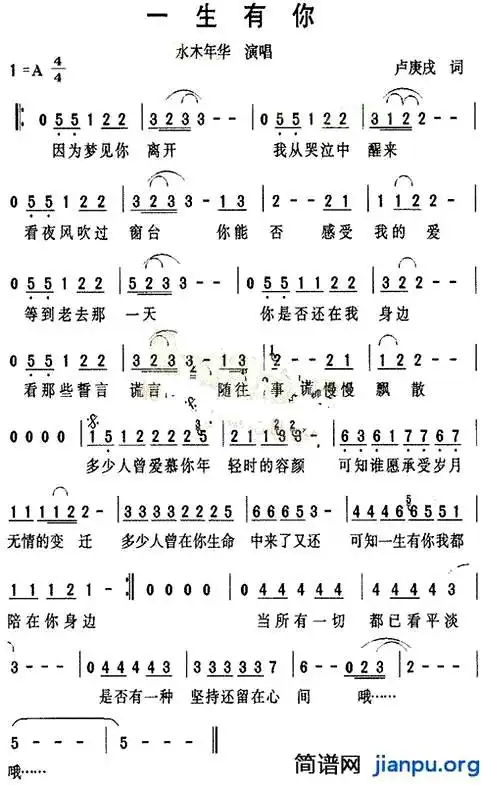 一 生 有 你
水木年华 演唱
1=A 4/4
卢庚戌 词
0 5 5 1 2 2 | 3 2 3 3 - | 0 5 5 1 2 2 | 3 1 2 2 - |
因为梦见你 离开 我从哭泣中 醒来
0 5 5 1 2 2 | 3 2 3 3 - 1 3 | 2 - - 2 1 | 1 2 2 - - |
看夜风吹过 窗台 你能否 感受 我的 爱
0 5 5 1 2 2 | 5 2 3 3 - | 0 5 5 1 1 2 2 | 3 2 2 - - |
等到老去那 一天 你是否还在我 身边
0 5 5 1 2 2 | 3 2 3 3 - 1 3 | 2 - - 2 1 | 1 2 2 - |
看那些誓言 谎言 随往 事 慢慢 飘散
0 0 0 0 | 1 5 1 2 2 2 2 5 | 2 1 9 3 - | 6 3 6 1 7 6 7 |
多少人曾爱慕你年 轻时的容颜 可知谁愿承受岁月
1 1 1 1 2 | 3 3 3 3 2 2 2 2 | 0 6 6 6 5 3 | 4 4 4 6 6 5 5 5 |
无情的变 迁 多少人曾在你生命 中来了又还 可知一生有你我都
1 1 1 2 1 - :‖ 0 0 0 0 | 0 4 4 4 4 3 | 4 4 4 4 3 |
陪在你身边 当所有一切 都已看平淡
3 - - - | 0 4 4 4 4 3 | 3 3 3 3 7 | 1 - - - | 6 - 0 2 3 |
是否有一种 坚持还留在心 间 哦……
5 - - - | 5 - - - ‖
哦……
简谱网 jianpu.org